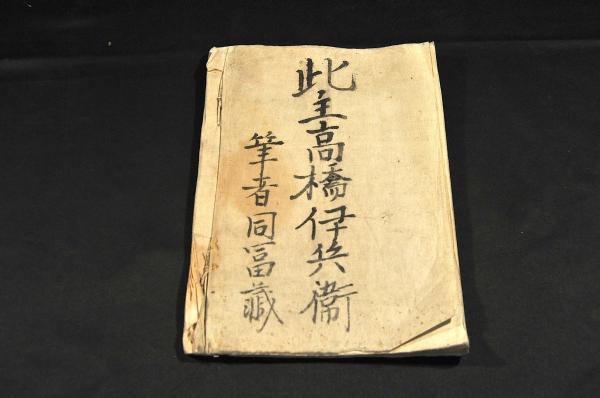 此主高橋伊兵衛
筆者同冨蔵